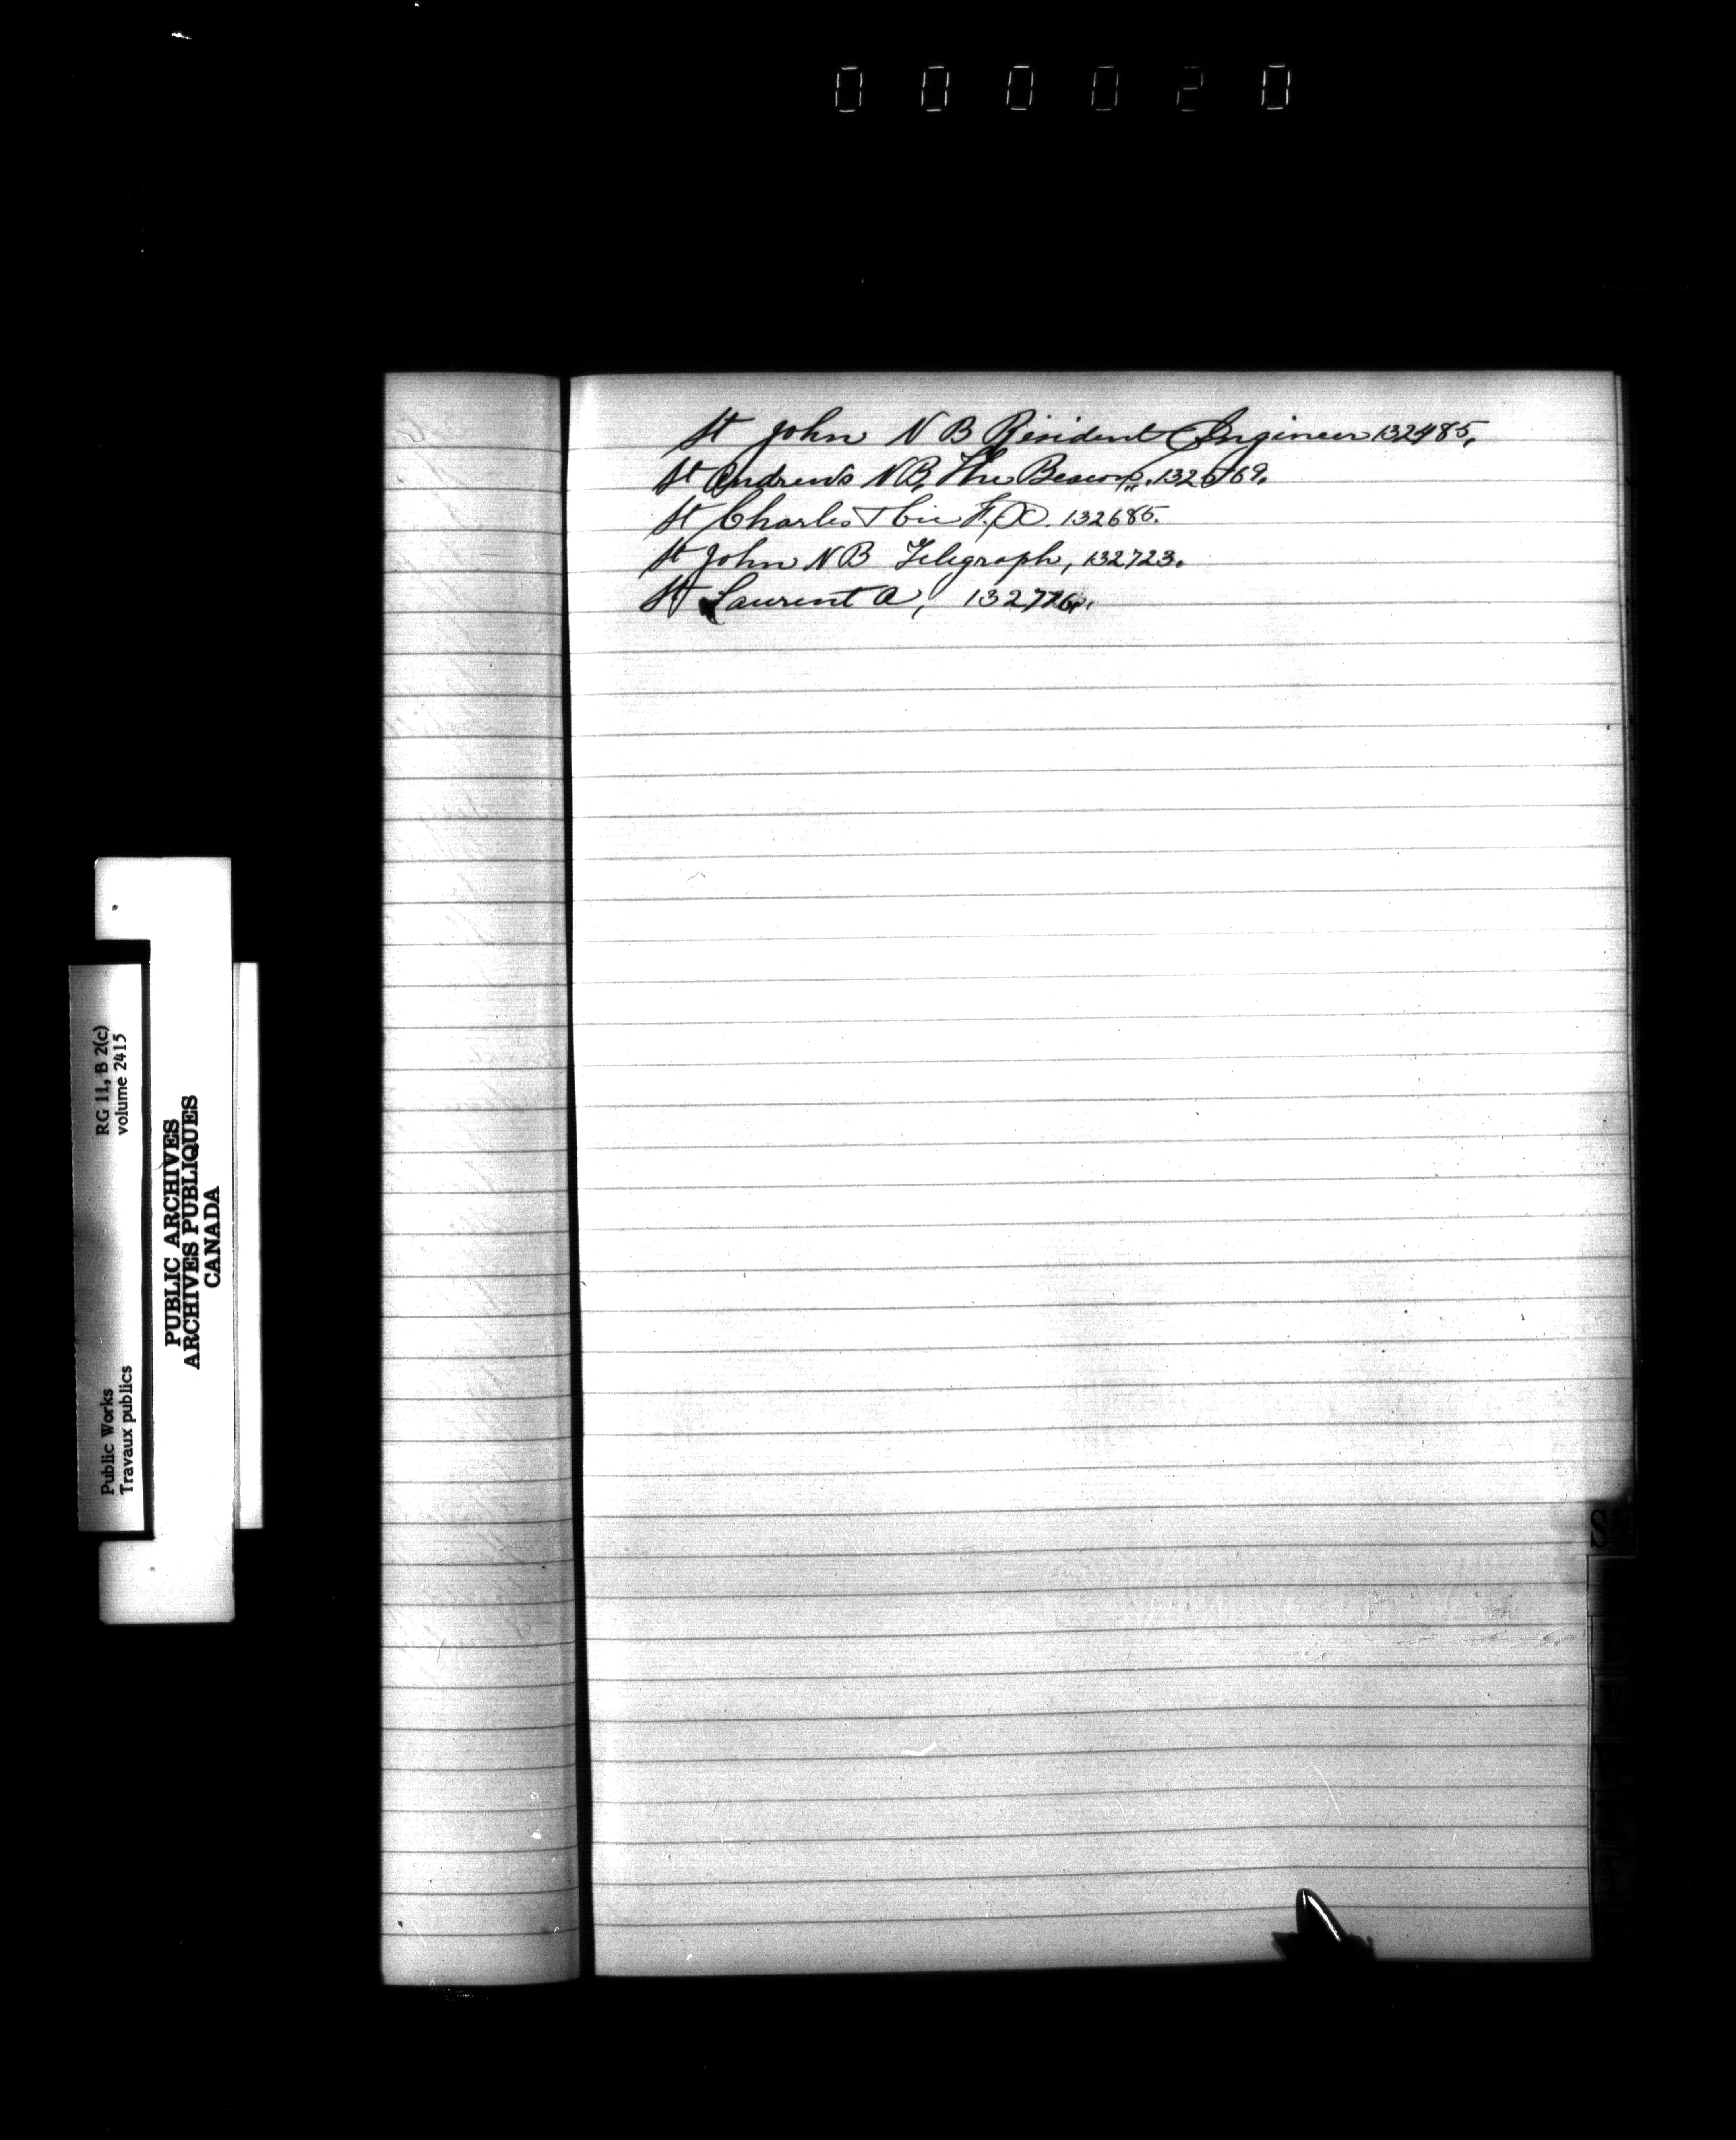 000020
St John N B Resident Engineer 132485.
St Andrews N B, The Beacon, 132669.
St Charles & Cie F. X. 132685.
St John N B Telegraph, 132723.
St Laurent A, 132776.
S
RG 11, B 2(c)
volume 2415
Public Works
Travaux publics
PUBLIC ARCHIVES
ARCHIVES PUBLIQUES
CANADA